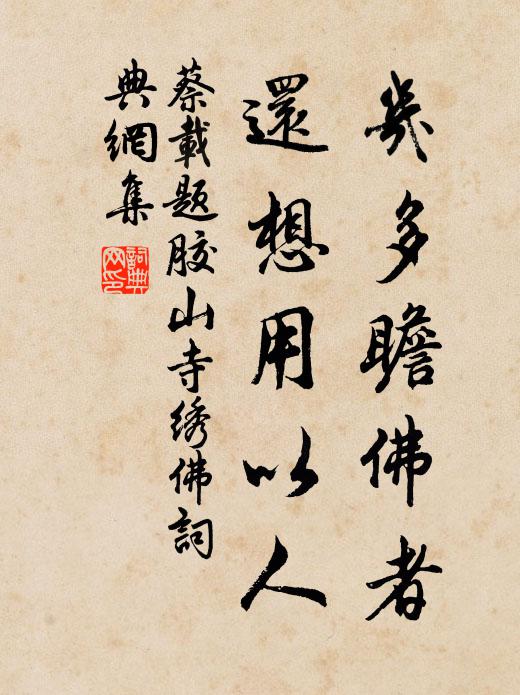 幾多瞻佛者
還想用以人
蔡載題胶山寺绣佛詞
典網集
詞典网印